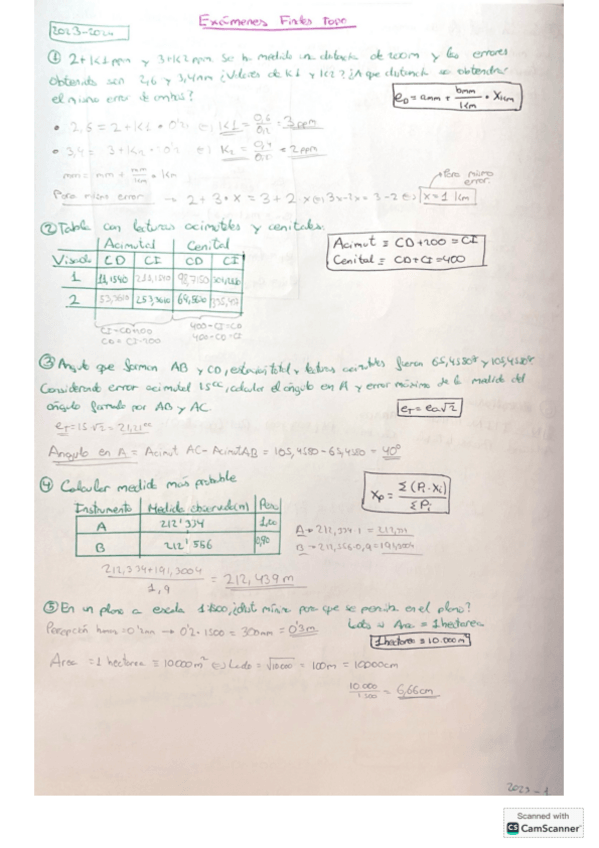 Exámenes Finales Topo
2023-2024
① 2+K1ppm y 3+K2ppm. Se ha medido una distancia de 200m y los errores
obtenidos son 2,6 y 3,4mm ¿Valores de K1 y K2? ¿A que distancia se obtendría
el mismo error de ambos?
e_D = amm + bmm/1km · X km
• 2,6 = 2 + K1 · 0'2 ⇔ K1 = 0,6/0,2 = 3ppm
• 3,4 = 3 + K2 · 0'2 ⇔ K2 = 0,4/0,2 = 2ppm
mm = mm + mm/1km · km
Para mismo error → 2 + 3 · X = 3 + 2 X ⇔ 3x-2x = 3-2 ⇔ x = 1 km
Para mismo
error.
② Tabla con lecturas acimutales y cenitales.
Acimut = CD+200 = CI
Cenital = CD+CI = 400
Acimutal Cenital
Visado CD CI CD CI
1
2 53,3610 253,3610
CI = CD+200
CD = CI-200
400-CI=CD
400-CD=CI
③ Angulo que forman AB y CD, estación total y lecturas acimutales fueron 65,4580g y 105,4580g
Considerando error acimutal 15cc, calcular el ángulo en A y error máximo de la medida del
ángulo formado por AB y AC.
e_T = ea√2
e_T = 15√2 = 21,21cc
Angulo en A = Acimut AC - Acimut AB = 105,4580 - 65,4580 = 40g
④ Calcular medida más probable
Xp = Σ(Pi·Xi)/ΣPi
Instrumento Medida observada(m) Peso
A 212'334 1,00
B 212'556 0,90
A → 212,334·1 =
B → 212,556·0,9 = 191,3004
212,334+191,3004/1,9 = 212,439 m
⑤ En un plano a escala 1:1500, ¿dist. mínima para que se perciba en el plano?
Lado si Area = 1 hectarea
Percepción humana = 0'2mm → 0'2 · 1500 = 300mm = 0'3m
1 hectarea = 10.000m²
Area = 1 hectarea = 10000m² ⇔ Lado = √10000 = 100m = 10000cm
10.000/1500 = 6,66cm
2023 - 1
Scanned with
CS CamScanner